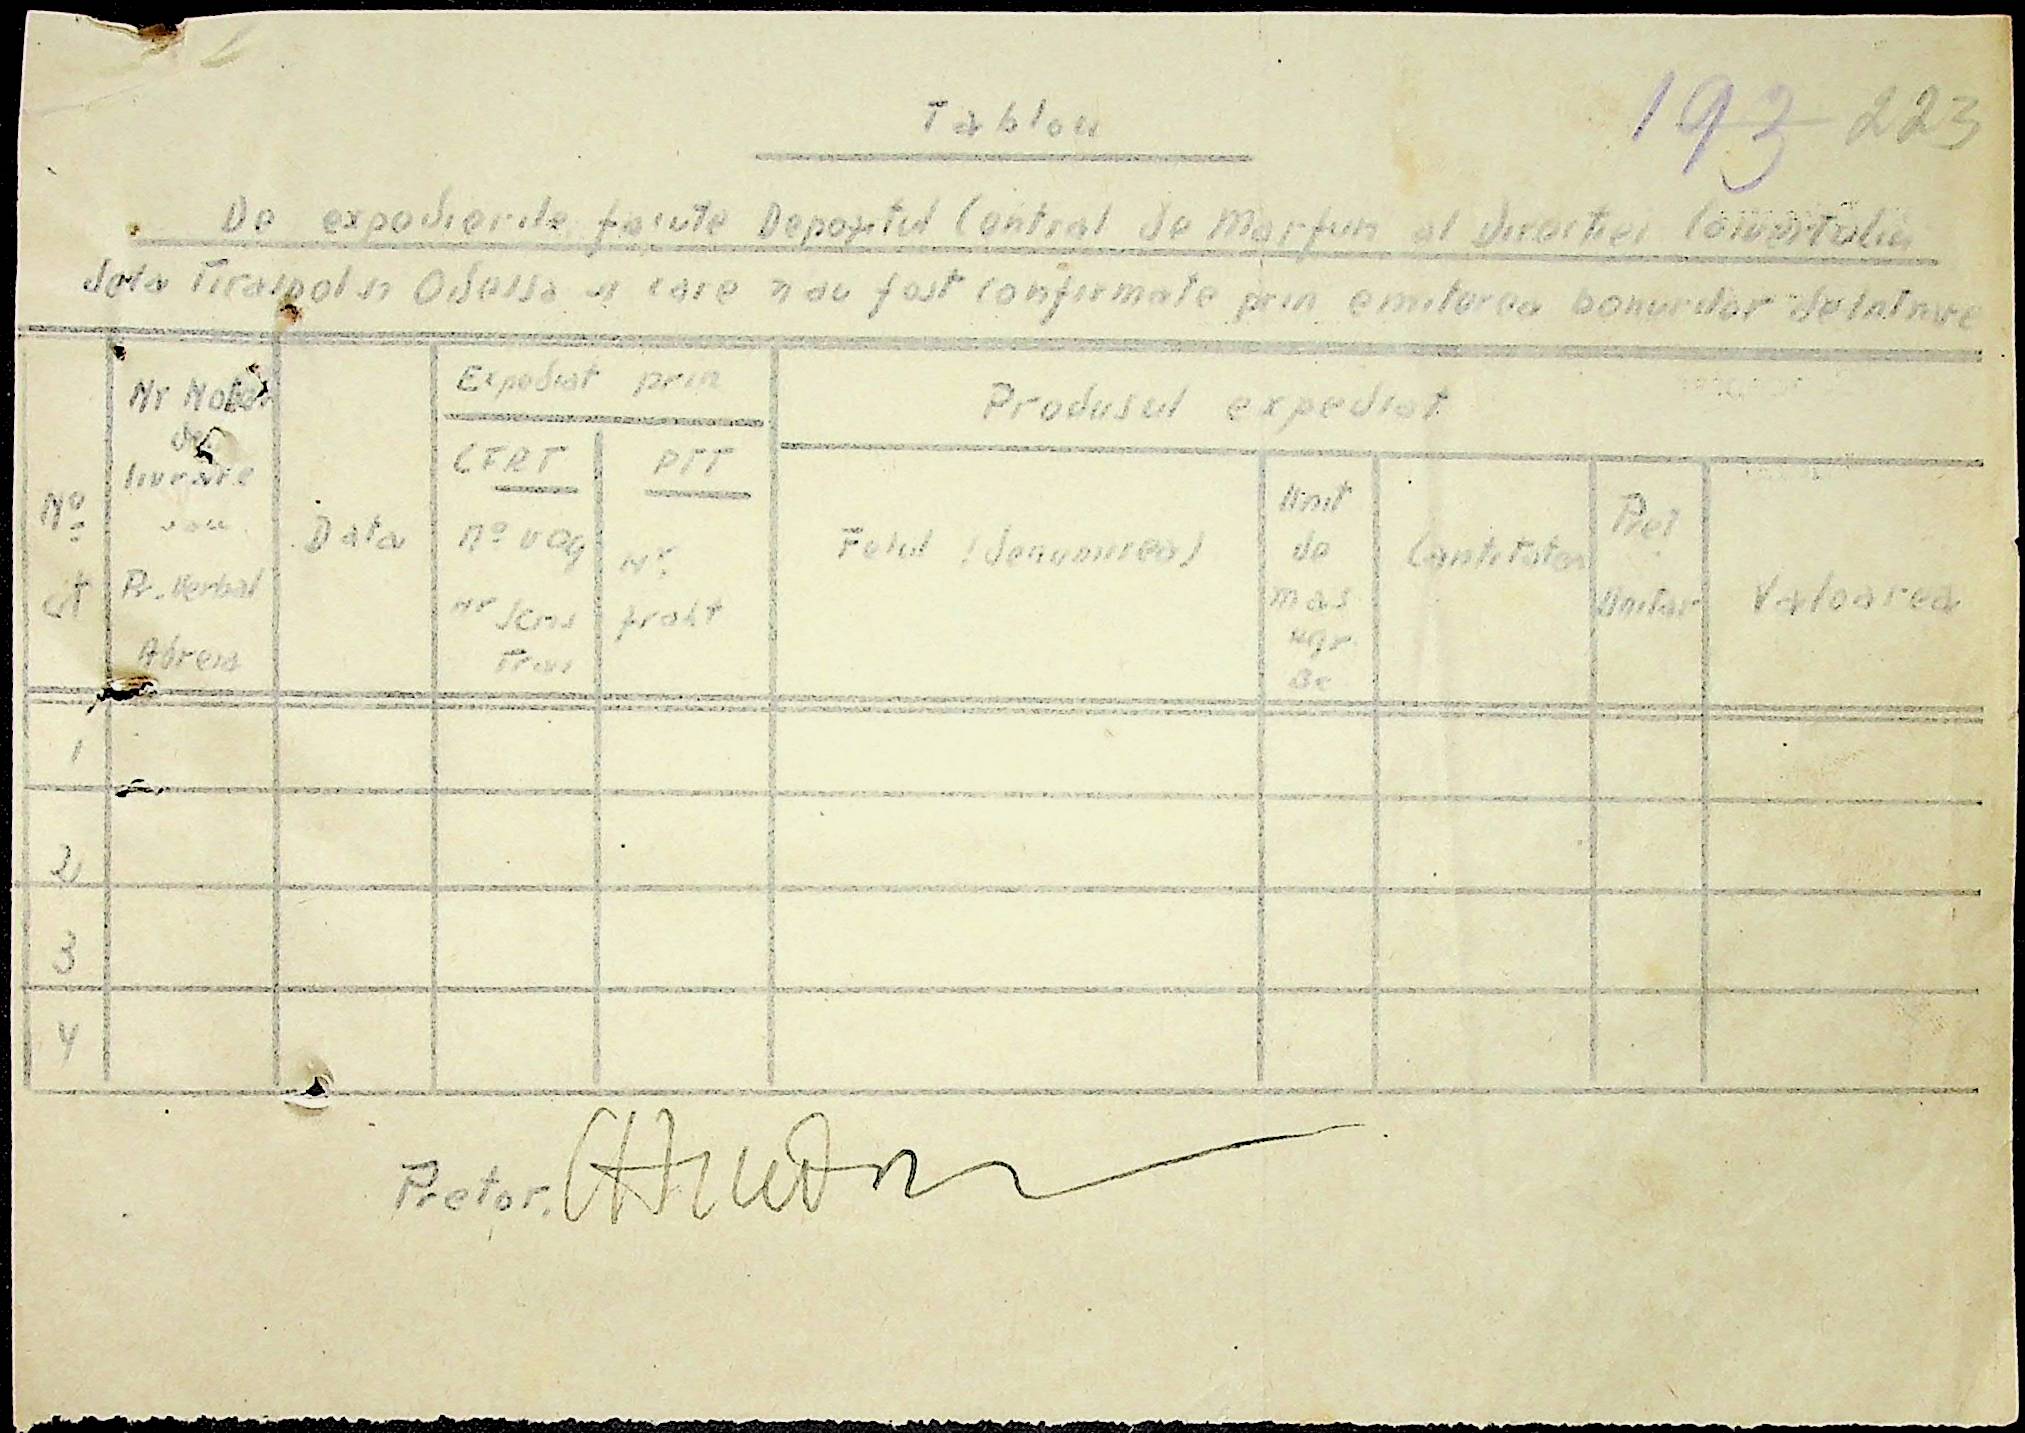 193 223
Tablou
De expedierile facute Depozitul Central de Marfuri al Directiei Comertului
dela Tiraspol si Odessa si care nau fost confirmate prin emiterea bonurilor de intrare
No
ct
Nr Notei
de
livrare
sau
Pr. Verbal
Adresa
Data
Expediat prin
CFRT
No vag
Nr Scris
Tras
PTT
Nr.
fraht
Produsul expediat
Felul (denumirea)
Unit
de
mas
kgr
Cantitatea
Pret
Unitar
Valoarea
1
2
3
4
Pretor,